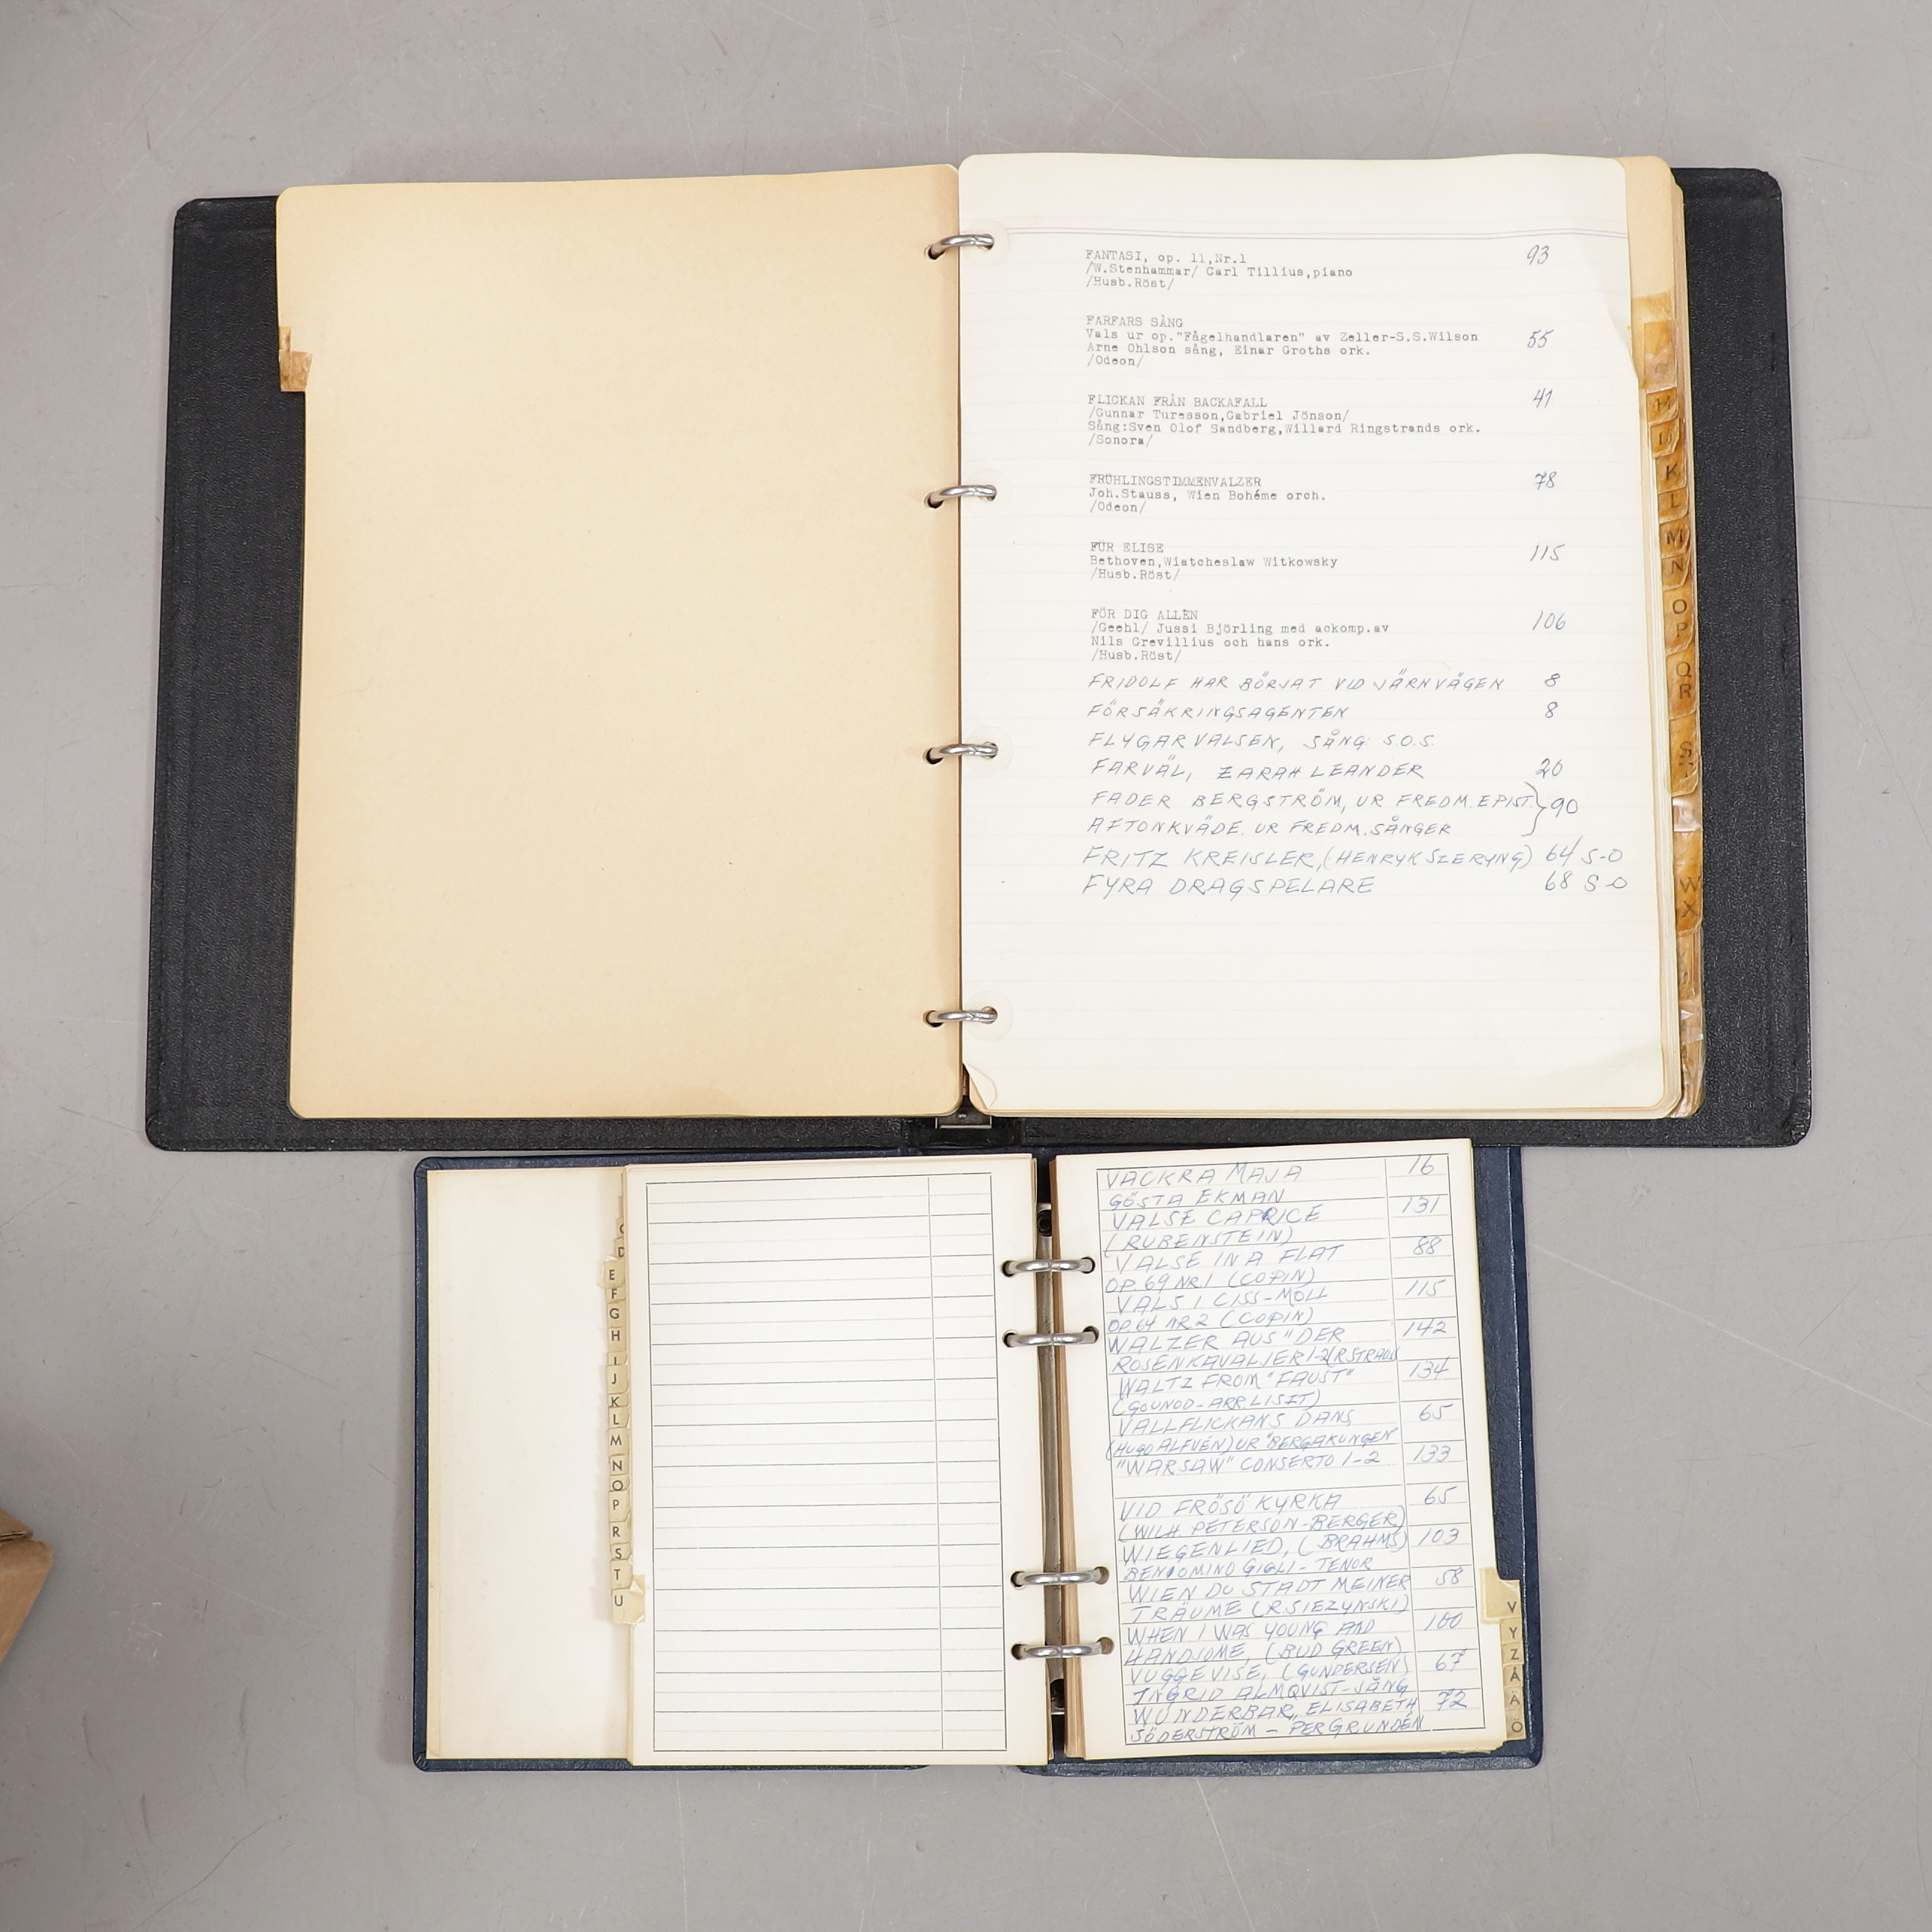 FANTASI, op. 11,Nr.1 93
/W.Stenhammar/ Carl Tillius,piano
/Husb.Röst/
FARFARS SÅNG
Vals ur op."Fågelhandlaren" av Zeller-S.S.Wilson 55
Arne Ohlson sång, Einar Groths ork.
/Odeon/
FLICKAN FRÅN BACKAFALL 41
/Gunnar Turesson,Gabriel Jönson/
Sång:Sven Olof Sandberg,Willard Ringstrands ork.
/Sonora/
FRÜHLINGSTIMMENVALZER 78
Joh.Stauss, Wien Bohéme orch.
/Odeon/
FÜR ELISE 115
Bethoven,Wiatcheslaw Witkowsky
/Husb.Röst/
FÖR DIG ALLEN 106
/Geehl/ Jussi Björling med ackomp.av
Nils Grevillius och hans ork.
/Husb.Röst/
FRIDOLF HAR BÖRJAT VID JÄRNVÄGEN 8
FÖRSÄKRINGSAGENTEN 8
FLYGARVALSEN, SÅNG: S.O.S.
FARVÄL, ZARAH LEANDER 20
FADER BERGSTRÖM, UR FREDM. EPIST. } 90
AFTONKVÄDE. UR FREDM. SÅNGER
FRITZ KREISLER, (HENRYK SZERYNG) 64 S-O
FYRA DRAGSPELARE 68 S-O
H
K
L
M
N
O
P
Q
R
S
W
X
VACKRA MAJA 16
GÖSTA EKMAN
VALSE CAPRICE 131
(RUBENSTEIN)
VALSE IN A FLAT 88
OP. 69 NR.1 (COPIN)
VALS I CISS-MOLL 115
OP. 64 NR 2 (COPIN)
WALZER AUS "DER 142
ROSENKAVALJER 1-2(R STRAUS
WALTZ FROM "FAUST" 134
(GOUNOD-ARR LISZT)
VALLFLICKANS DANS 65
(HUGO ALFVÉN) UR "BERGAKUNGEN"
"WARSAW" CONSERTO 1-2 133
VID FRÖSÖ KYRKA 65
(WILH. PETERSON-BERGER)
WIEGENLIED, (BRAHMS) 103
BENIOMINO GIGLI - TENOR
WIEN DU STADT MEINER 58
TRÄUME (R SIEZYNSKI)
WHEN I WAS YOUNG AND 100
HANDSOME, (BUD GREEN)
VUGGEVISE, (GUNDERSEN) 67
INGRID ALMQVIST-SÅNG
WUNDERBAR, ELISABETH 72
SÖDERSTRÖM - PER GRUNDÉN
D
E
F
G
H
I
J
K
L
M
N
O
P
R
S
T
U
V
Y
Z
Å
Ä
Ö